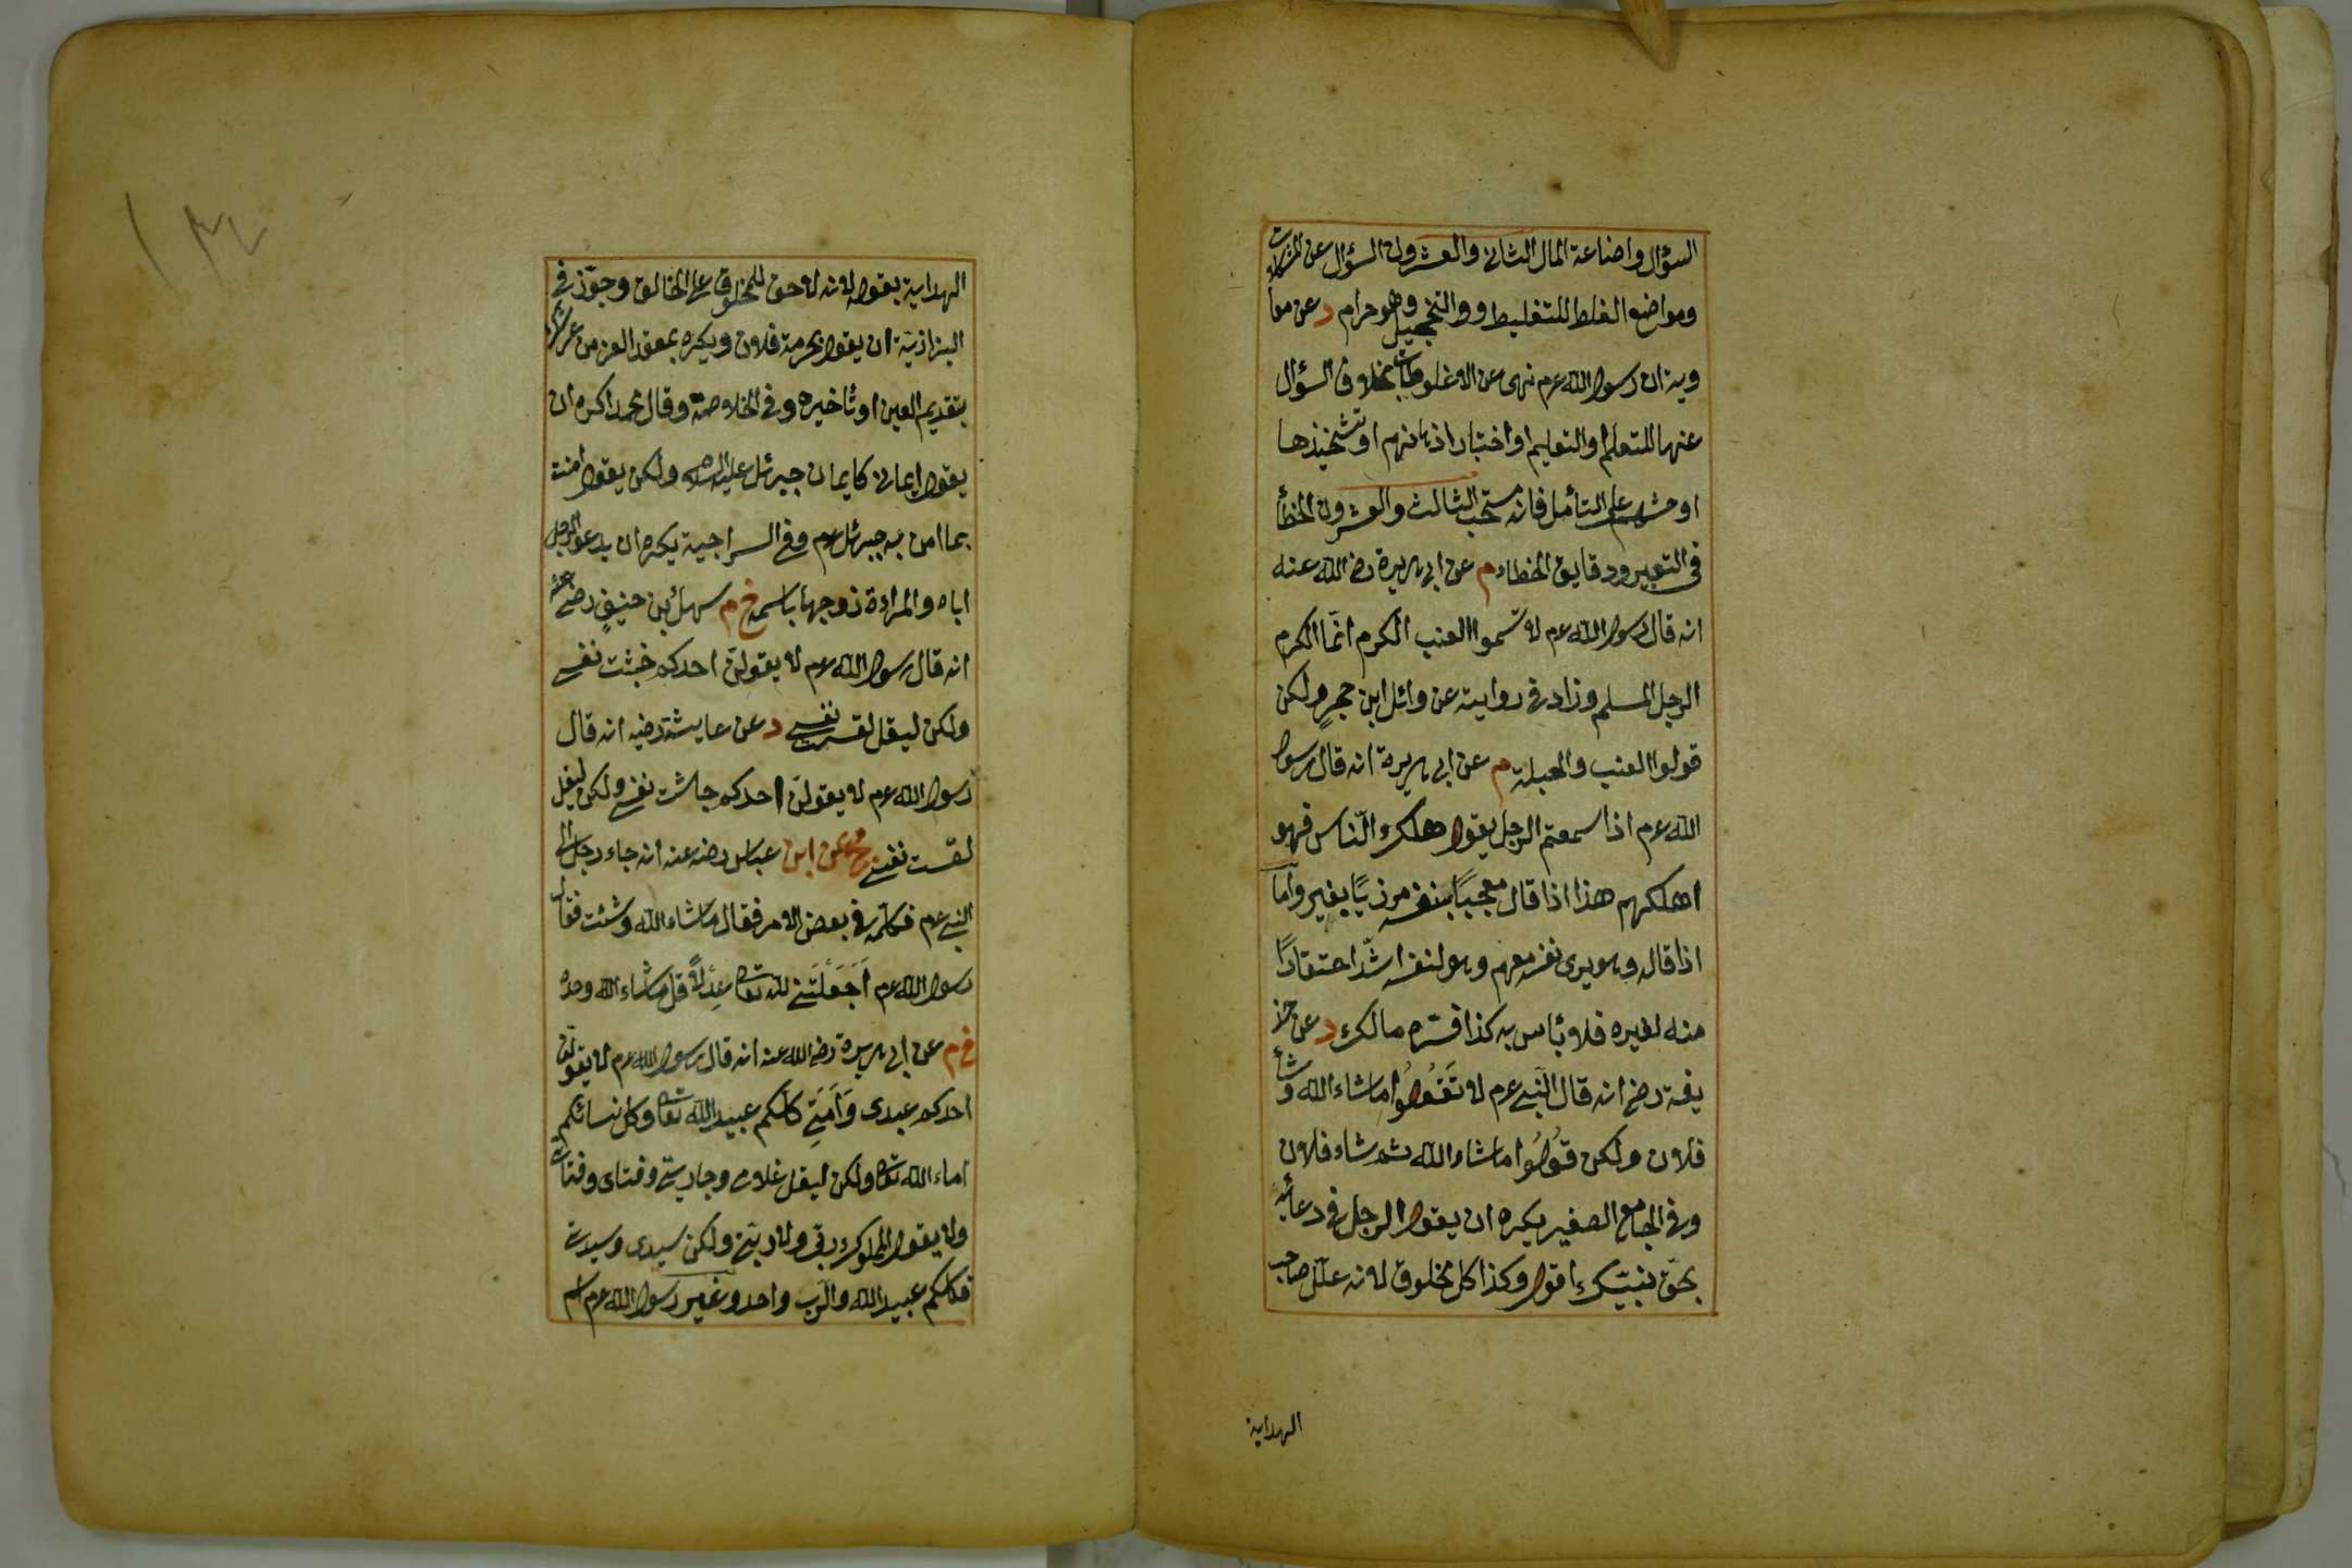 السؤال واضاعة المال الثانى والعشرون السؤال عن المشكلات
ومواضع الغلط للتغليط و والتخجيل وهو حرام د عن معا
وية ان رسول الله عم نهى عن الاغلوطات بخلاف السؤال
عنها للمتعلم او التعليم او اختبار اذهانهم او تشخيذها
او حثهم على التأمل فانه مستحب الثالث والعشرون الخطأ
فى التعبير ودقايق الخطاء م عن ابى هريرة رضى الله عنه
انه قال رسول الله عم لا تسموا العنب الكرم انما الكرم
الرجل المسلم وزاد فى رواية عن وائل ابن حجرٍ ولكن
قولوا العنب والحبلة م عن ابى هريرة انه قال رسول
الله عم اذا سمعتم الرجل يقول هلك النّاس فهو
اهلكهم هذا اذا قال معجبًا بنفسه مزريًا بغير واما
اذا قاله وهو يرى نفسه معهم وهو لنفسه اشدّ احتقارًا
منه لغيره فلا بأس به كذا فسّره مالك د عن حذ
يفة رضى انه قال النّبى عم لا تَقُولُوا ما شاء الله وشاء
فلان ولكن قُولُوا ما شاء الله ثم شاء فلان
وفى الجامع الصغير يكره ان يقول الرجل فى دعائه
بحقّ نبيّك اقول وكذا كل مخلوق لانه علّل صاحب
الهداية
الهداية بقوله لانه لا حق للمخلوق على الخالق وجوّز فى
البزازيّة ان يقول بحرمة فلان ويكره بمعقد العز من عرشك
بتقديم العين او تأخيره وفى الخلاصة وقال محمد اكره ان
يقول ايمانى كايمان جبرئل عليه السلام ولكن يقول امنت
بما امن به جبرئل عم وفى السراجية يكره ان يدعو الرجل
اباه والمراءة زوجها باسمه خ م سهل بن حنيفٍ رضى عنه
انه قال رسول الله عم لا يقولن احدكم خبثت نفسى
ولكن ليقل لقست نفسى د عن عايشة رضيه انه قال
رسول الله عم لا يقولنّ احدكم جاشت نفسى ولكن ليقل
لقست نفسى عن ابن عباس رضه عنه انه جاء رجل الى
النبى عم فكلمه فى بعض الامر فقال ما شاء الله وشئت فقال
رسول الله عم أَجَعَلْتَنى لله تعالى عِدلاً قل ما شاء الله وحده
خ م عن ابى هريرة رضى الله عنه انه قال رسول الله عم لا يقولن
احدكم عبدى وَاَمَتِى كلّكم عبيد الله تعالى وكل نسائكم
اماء الله تعالى ولكن ليقل غلامى وجاريتى وفتاى وفتاتى
ولا يقول المملوك ربى ولا ربّتى ولكن سيدى وسيدتى
فكلكم عبيد الله والرّب واحد وغير رسول الله عم اسم
١٣٤